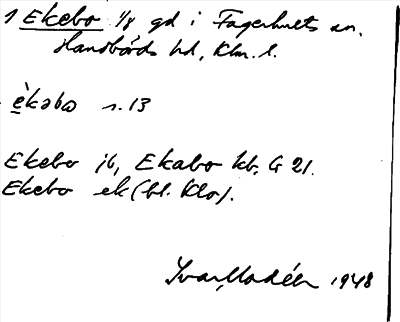 1 Ekebo 1/8 gd i Fagerhults sn.
Handbörds hd, Klm. l.
èkəbo s. 13
Ekebo jb, Ekabo kb, G 21.
Ekebo ek (bl. Klo).
Ivar Modéer 1948